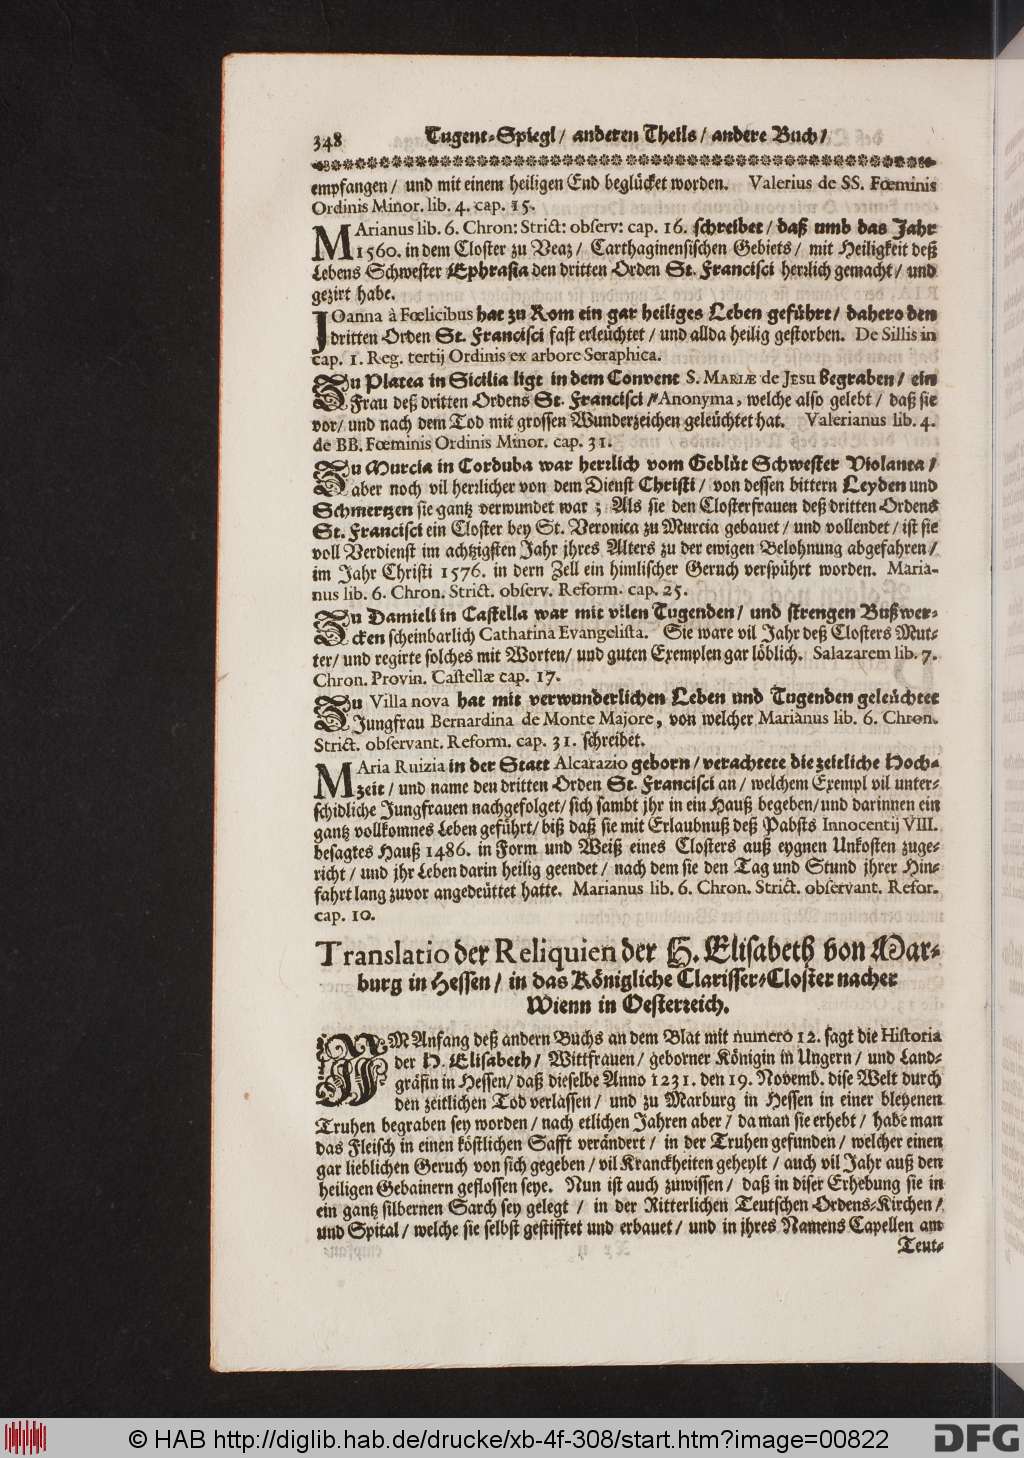 348 Tugent-Spiegl / anderen Theils / andere Buch /
empfangen / und mit einem heiligen End beglücket worden. Valerius de SS. Fœminis
Ordinis Minor. lib. 4. cap. 15.
MArianus lib. 6. Chron: Strict: observ: cap. 16. schreibet / daß umb das Jahr
1560. in dem Closter zu Veaz / Carthaginensischen Gebiets / mit Heiligkeit deß
Lebens Schwester Ephrasia den dritten Orden St. Francisci herrlich gemacht / und
gezirt habe.
JOanna à Fœlicibus hat zu Rom ein gar heiliges Leben geführt / dahero den
dritten Orden St. Francisci fast erleüchtet / und allda heilig gestorben. De Sillis in
cap. 1. Reg. tertij Ordinis ex arbore Seraphica.
Zu Platea in Sicilia ligt in dem Convent S. MARIÆ de JESU begraben / ein
Frau deß dritten Ordens St. Francisci / Anonyma, welche also gelebt / daß sie
vor / und nach dem Tod mit grossen Wunderzeichen geleüchtet hat. Valerianus lib. 4.
de BB. Fœminis Ordinis Minor. cap. 31.
Zu Murcia in Corduba war herrlich vom Geblüt Schwester Violanta /
aber noch vil herrlicher von dem Dienst Christi / von dessen bittern Leyden und
Schmertzen sie gantz verwundet war ; Als sie den Closterfrauen deß dritten Ordens
St. Francisci ein Closter bey St. Veronica zu Murcia gebauet / und vollendet / ist sie
voll Verdienst im achtzigsten Jahr jhres Alters zu der ewigen Belohnung abgefahren /
im Jahr Christi 1576. in dern Zell ein himlischer Geruch verspührt worden. Maria-
nus lib. 6. Chron. Strict. observ. Reform. cap. 25.
Zu Damieli in Castella war mit vilen Tugenden / und strengen Bußwer-
cken scheinbarlich Catharina Evangelista. Sie ware vil Jahr deß Closters Mut-
ter / und regirte solches mit Worten / und guten Exemplen gar löblich. Salazarem lib. 7.
Chron. Provin. Castellæ cap. 17.
Zu Villa nova hat mit verwunderlichen Leben und Tugenden geleüchtet
Jungfrau Bernardina de Monte Majore, von welcher Marianus lib. 6. Chron.
Strict. observant. Reform. cap. 31. schreibet.
MAria Ruizia in der Statt Alcarazio geborn / verachtete die zeitliche Hoch-
zeit / und name den dritten Orden St. Francisci an / welchem Exempl vil unter-
schidliche Jungfrauen nachgefolget / sich sambt jhr in ein Hauß begeben / und darinnen ein
gantz vollkomnes Leben geführt / biß daß sie mit Erlaubnuß deß Pabsts Innocentij VIII.
besagtes Hauß 1486. in Form und Weiß eines Closters auß eygnen Unkosten zuge-
richt / und jhr Leben darin heilig geendet / nach dem sie den Tag und Stund jhrer Hin-
fahrt lang zuvor angedeüttet hatte. Marianus lib. 6. Chron. Strict. observant. Refor.
cap. 10.
Translatio der Reliquien der H. Elisabeth von Mar-
burg in Hessen / in das Königliche Clarisser-Closter nacher
Wienn in Oesterreich.
IM Anfang deß andern Buchs an dem Blat mit numero 12. sagt die Historia
der H. Elisabeth / Wittfrauen / geborner Königin in Ungern / und Land-
gräfin in Hessen / daß dieselbe Anno 1231. den 19. Novemb. dise Welt durch
den zeitlichen Tod verlassen / und zu Marburg in Hessen in einer bleyenen
Truhen begraben sey worden / nach etlichen Jahren aber / da man sie erhebt / habe man
das Fleisch in einen köstlichen Safft verändert / in der Truhen gefunden / welcher einen
gar lieblichen Geruch von sich gegeben / vil Kranckheiten geheylt / auch vil Jahr auß den
heiligen Gebainern geflossen seye. Nun ist auch zuwissen / daß in diser Erhebung sie in
ein gantz silbernen Sarch sey gelegt / in der Ritterlichen Teutschen Ordens-Kirchen /
und Spital / welche sie selbst gestifftet und erbauet / und in jhres Namens Capellen am
Teut-
© HAB http://diglib.hab.de/drucke/xb-4f-308/start.htm?image=00822
DFG